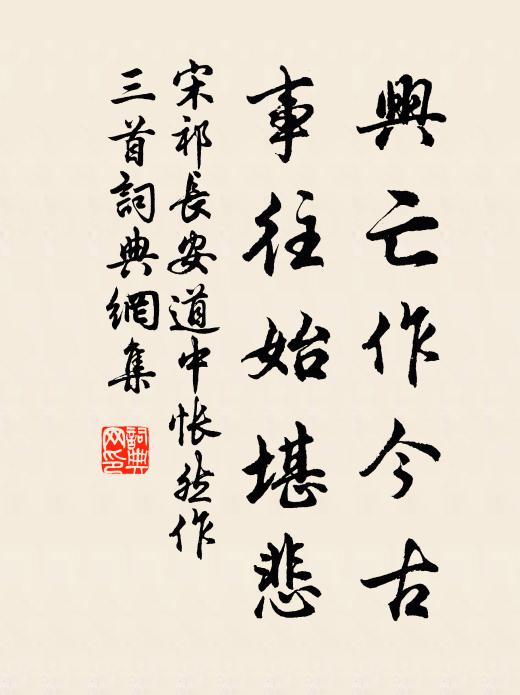 興亡作今古
事往始堪悲
宋祁長安道中悵然作
三首詞典網集
詞典
网印